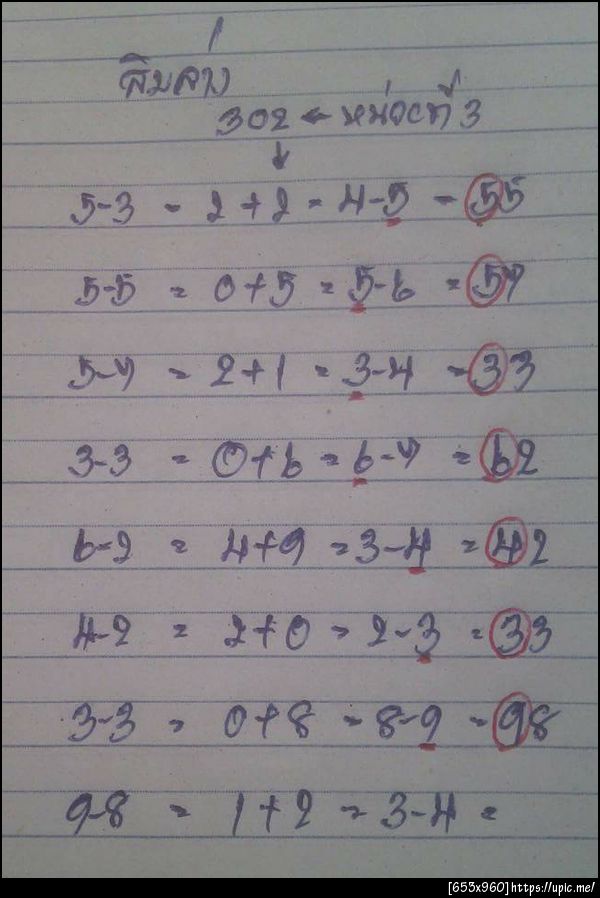 สิบล่าง
302 ← หน่วยที่ 3
↓
5-3 = 2+2 = 4-5 = 55
5-5 = 0+5 = 5-6 = 57
5-7 = 2+1 = 3-4 = 33
3-3 = 0+6 = 6-7 = 62
6-2 = 4+9 = 3-4 = 42
4-2 = 2+0 = 2-3 = 33
3-3 = 0+8 = 8-9 = 98
9-8 = 1+2 = 3-4 =
[653x960] https://upic.me/